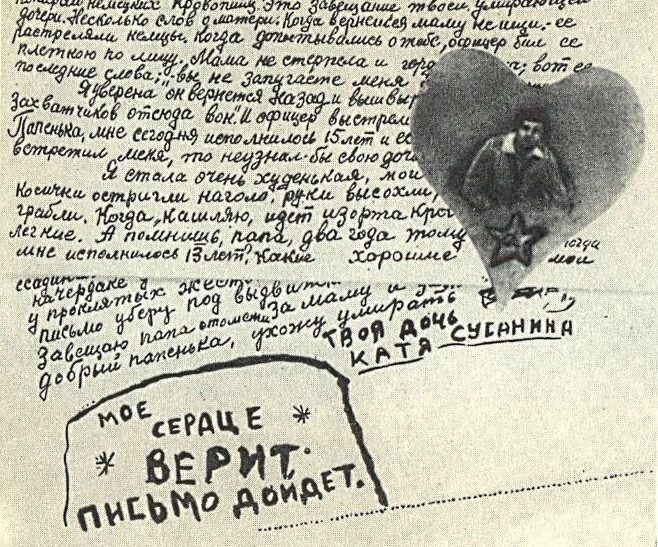 немецких кровопийц. Это завещание твоей умирающей
дочери. Несколько слов о матери. Когда вернешься маму не ищи.- ее
растреляли немцы. Когда допытывались о тебе, офицер бил ее
плеткою по лицу. Мама не стерпела и вот ее
последние слова:-„вы не запугаете меня
Я уверена он вернется назад и вышвыр
захватчиков отсюда вон." И офицер выстрел
Папенька, мне сегодня исполнилось 15 лет и ес
встретил меня, то неузнал-бы свою доч
Я стала очень худенькая, мои
косички остригли наголо, руки высохли,
грабли. Когда, кашляю, идет изорта кро
легкие. А помнишь, папа, два года тому когда
мне исполнилось 13 лет, какие хорошие мои
начердаке у
у проклятых жест
письмо уберу под
Завещаю папа отомсти за маму и
добрый папенька, ухожу умирать
ТВОЯ ДОЧЬ
КАТЯ СУСАНИНА
МОЕ
СЕРДЦЕ
ВЕРИТ.
ПИСЬМО ДОЙДЕТ.